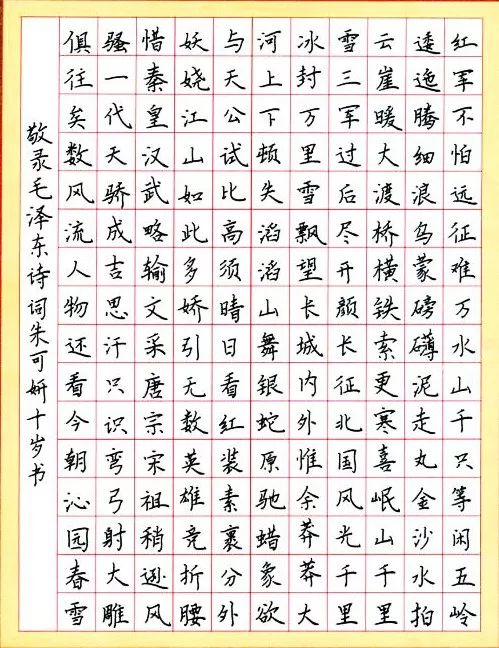 红军不怕远征难万水山千只等闲五岭
逶迤腾细浪乌蒙磅礴泥走丸金沙水拍
云崖暖大渡桥横铁索更寒喜岷山千里
雪三军过后尽开颜长征北国风光千里
冰封万里雪飘望长城内外惟余莽莽大
河上下顿失滔滔山舞银蛇原驰蜡象欲
与天公试比高须晴日看红装素裹分外
妖娆江山如此多娇引无数英雄竞折腰
惜秦皇汉武略输文采唐宗宋祖稍逊风
骚一代天骄成吉思汗只识弯弓射大雕
俱往矣数风流人物还看今朝沁园春雪
敬录毛泽东诗词朱可妍十岁书